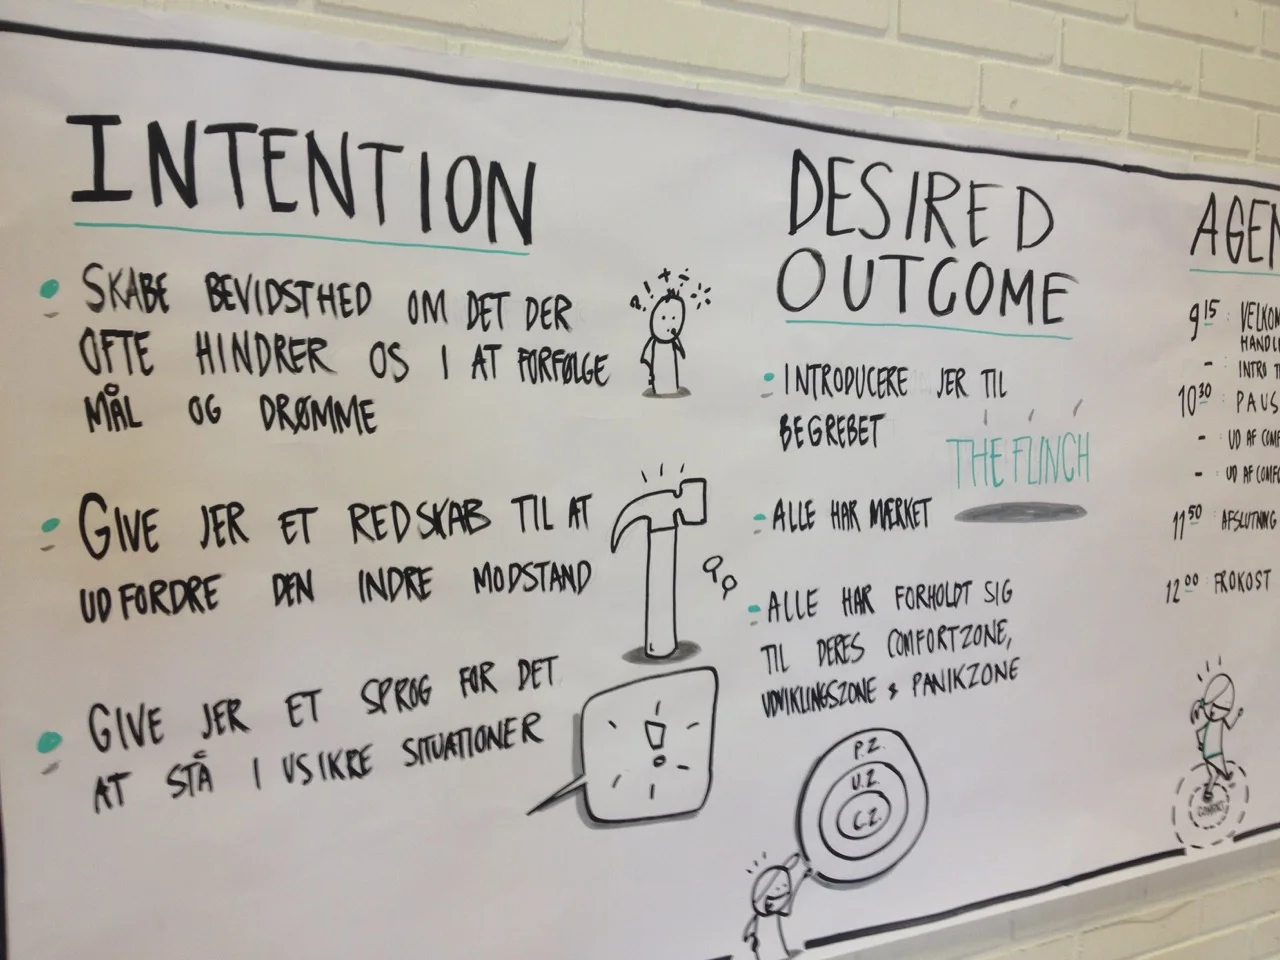 INTENTION
SKABE BEVIDSTHED OM DET DER
OFTE HINDRER OS I AT FORFØLGE
MÅL OG DRØMME
GIVE JER ET REDSKAB TIL AT
UDFORDRE DEN INDRE MODSTAND
GIVE JER ET SPROG FOR DET
AT STÅ I USIKRE SITUATIONER
!
DESIRED
OUTCOME
INTRODUCERE JER TIL
BEGREBET
THE FLINCH
ALLE HAR MÆRKET
ALLE HAR FORHOLDT SIG
TIL DERES COMFORTZONE,
UDVIKLINGSZONE & PANIKZONE
P.Z.
U.Z.
C.Z.
AGEN
9 15 : VELKOM
HANDL
- : INTRO T
10 30 : PAUS
- : UD AF COMF
- : UD AF COMFO
11 50 : AFSLUTNING
12 00 : FROKOST